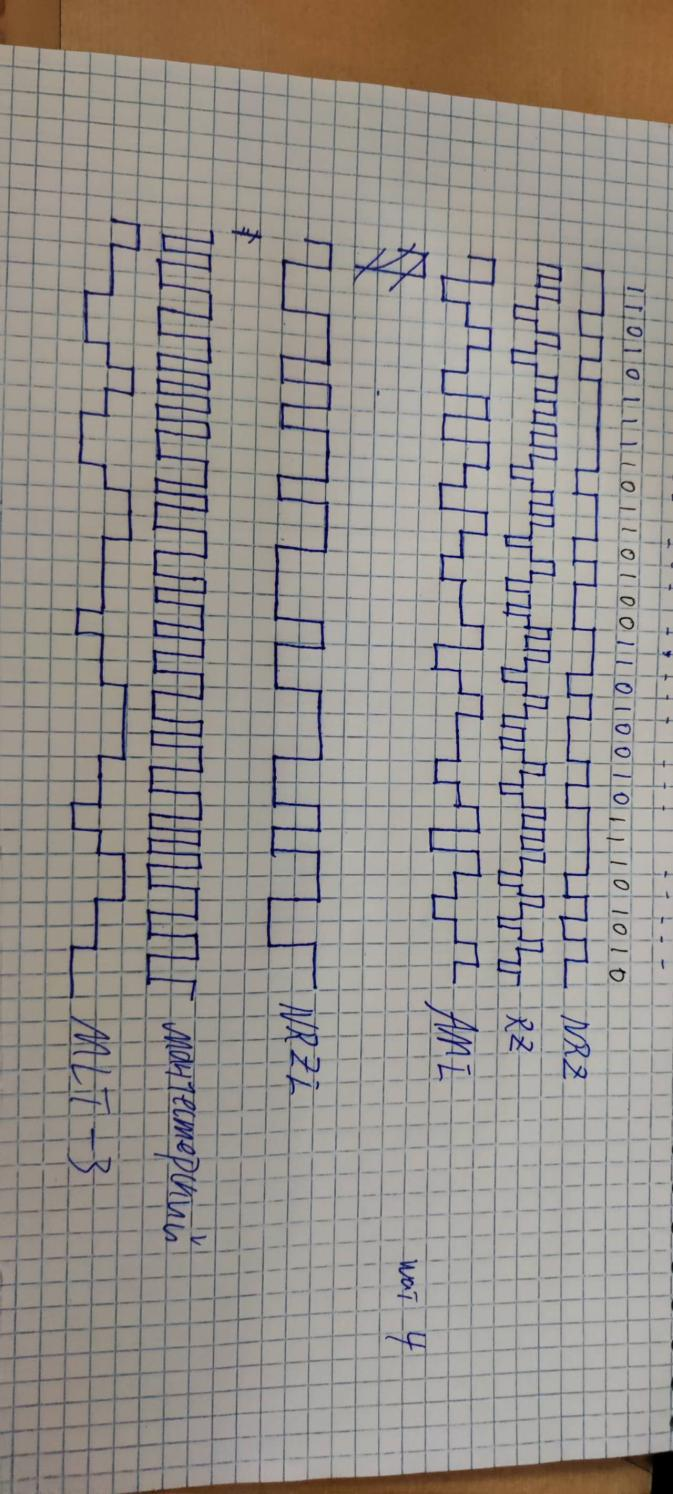 11010111101101001101001011101010
NRZ
RZ
AMI
NRZi
Манчестерский
MLT-3